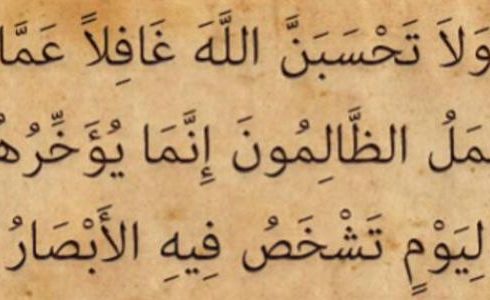 وَلاَ تَحْسَبَنَّ اللَّهَ غَافِلاً عَمَّا
يَعْمَلُ الظَّالِمُونَ إِنَّمَا يُؤَخِّرُهُمْ
لِيَوْمٍ تَشْخَصُ فِيهِ الأَبْصَارُ